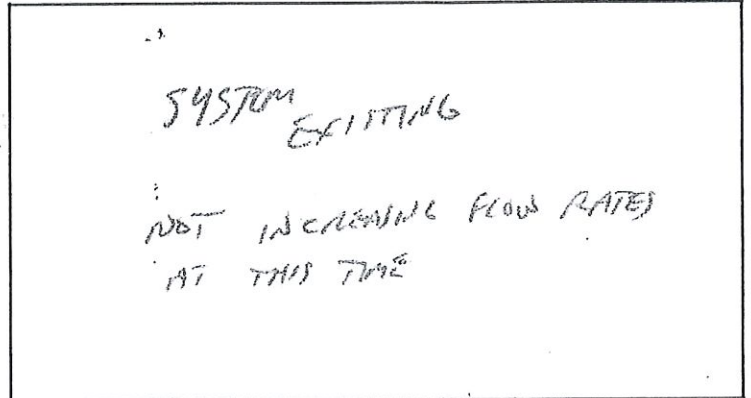 SYSTEM EXISTING
NOT INCREASING FLOW RATES
AT THIS TIME